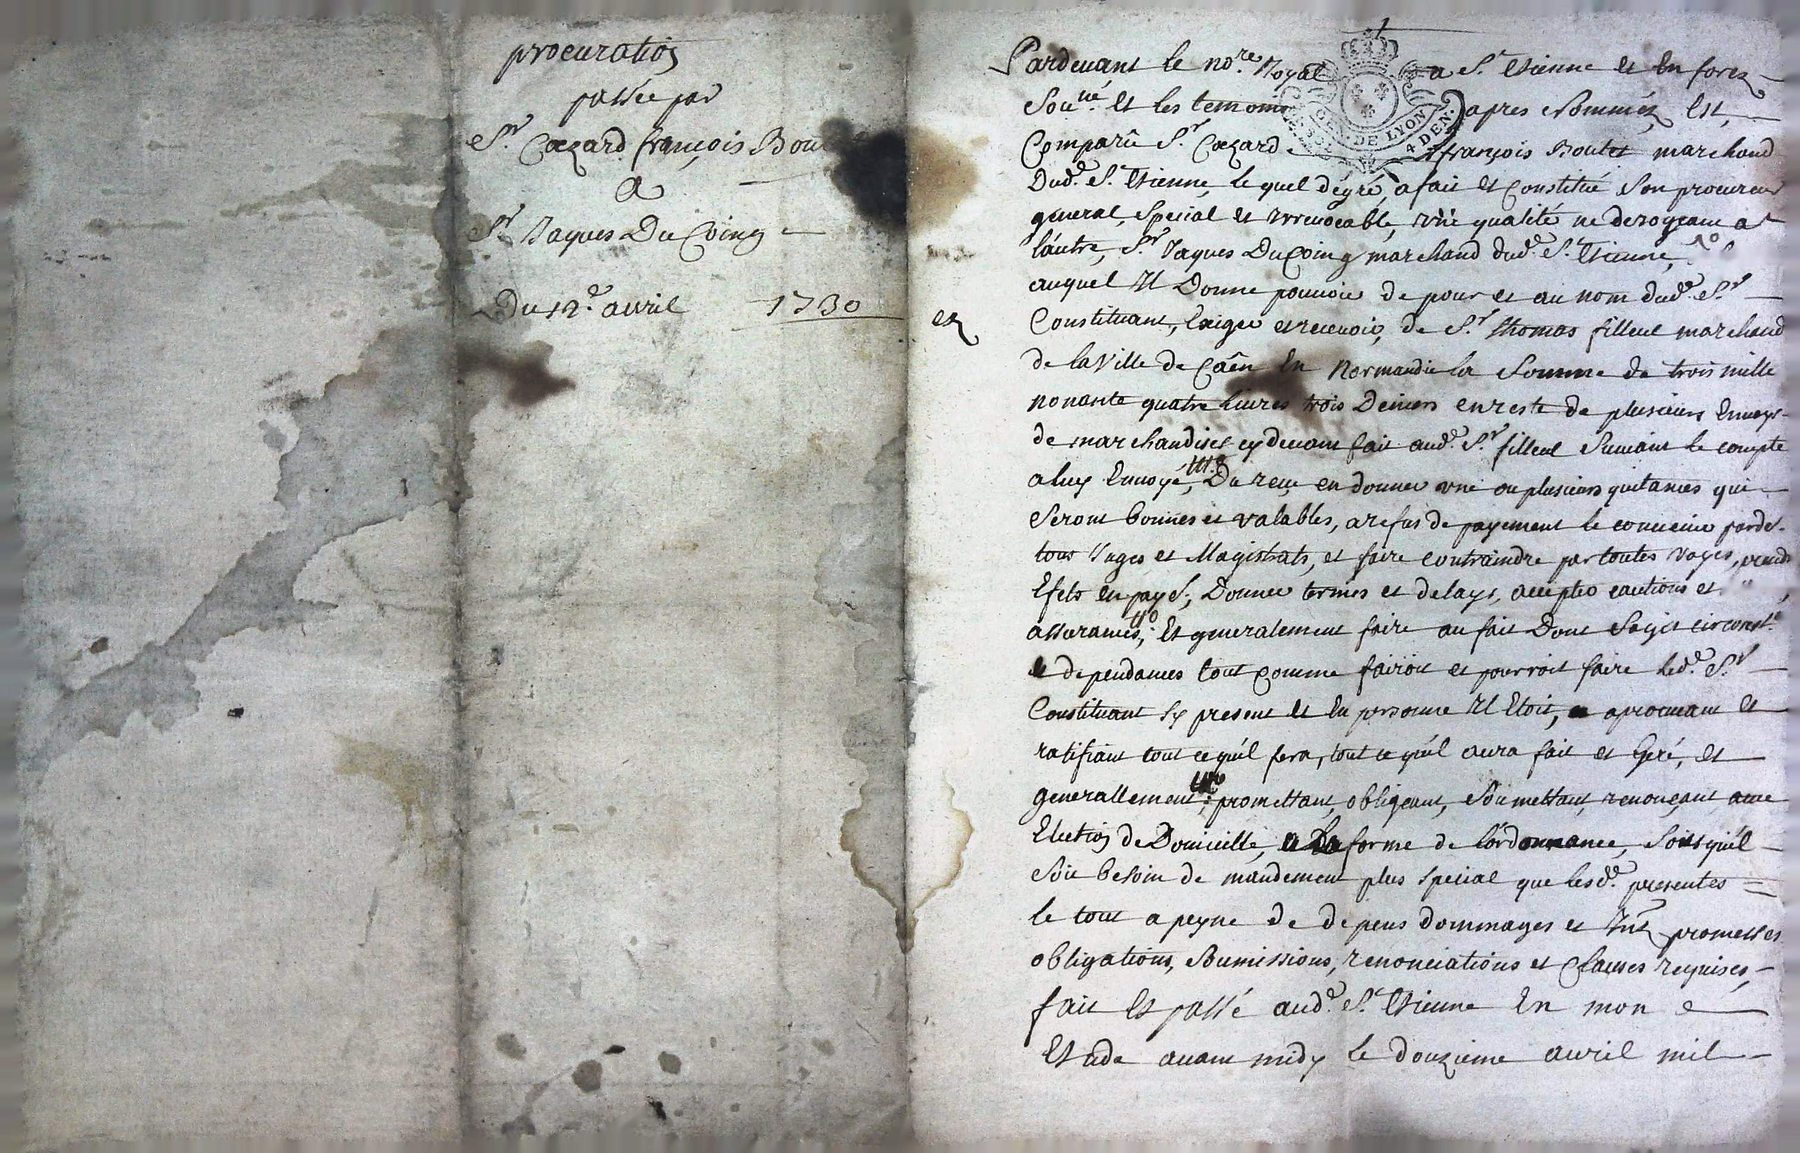 procuration
passée par
Sr. Cæzard françois Bout
A
Sr Jaques Du Coing
Du 12e. avril 1730
Pardevant le nore. Royal a St. Etienne et En forez
Sousné. Et les temoins apres Nommés, Est
Comparû Sr. Cæzard françois Boutet marchand
Dudt. St. Etienne, lequel degré, a fait et Constitué Son procureur
general, Special et irrevocable, une qualité ne derogeant a
l'autre, Sr Jaques DuCoing marchand dudt. St. Etienne,
auquel Il Donne pouvoir de pour et au nom dudt. Sr
Constituant, Exiger et recevoir, de Sr. Thomas filleul marchand
de la Ville de Caên En Normandie la Somme de trois mille
nonante quatre livres trois Deniers en reste de plusieurs Envoys
de marchandises cy devant fait audt. Sr filleul Suivant le compte
a luy Envoyé, Du reçu en donner une ou plusieurs quitances qui
Seront bonnes et valables, a refus de payement le convenir pardt.
tous Juges et Magistrats, et faire contraindre par toutes voyes, prendre
Efets en paye, Donner termes et delays, accepter cautions et
assurances, Et generalement faire au fait Dont Sagit circonst.
dependances tout comme fairoit et pourroit faire ledt. Sr
Constituant Sy present et En personne Il Etoit, aprouvant et
ratifiant tout ce qu'il fera, tout ce qu'il aura fait et Geré, et
generallement promettant, obligeant, Soumettant, renonçant avec
Election de Domicille, a La forme de l'ordonnance, Sans qu'il
Soit besoin de mandement plus Special que lesdt. presentes
le tout a peyne de depens dommages et Intz promesses
obligations, Soumissions, renonciations et Clauses requises,
fait Et passé audt. St. Etienne En mon
Etude avant midy le douzieme avril mil
GEN. DE LYON
4 DEN.